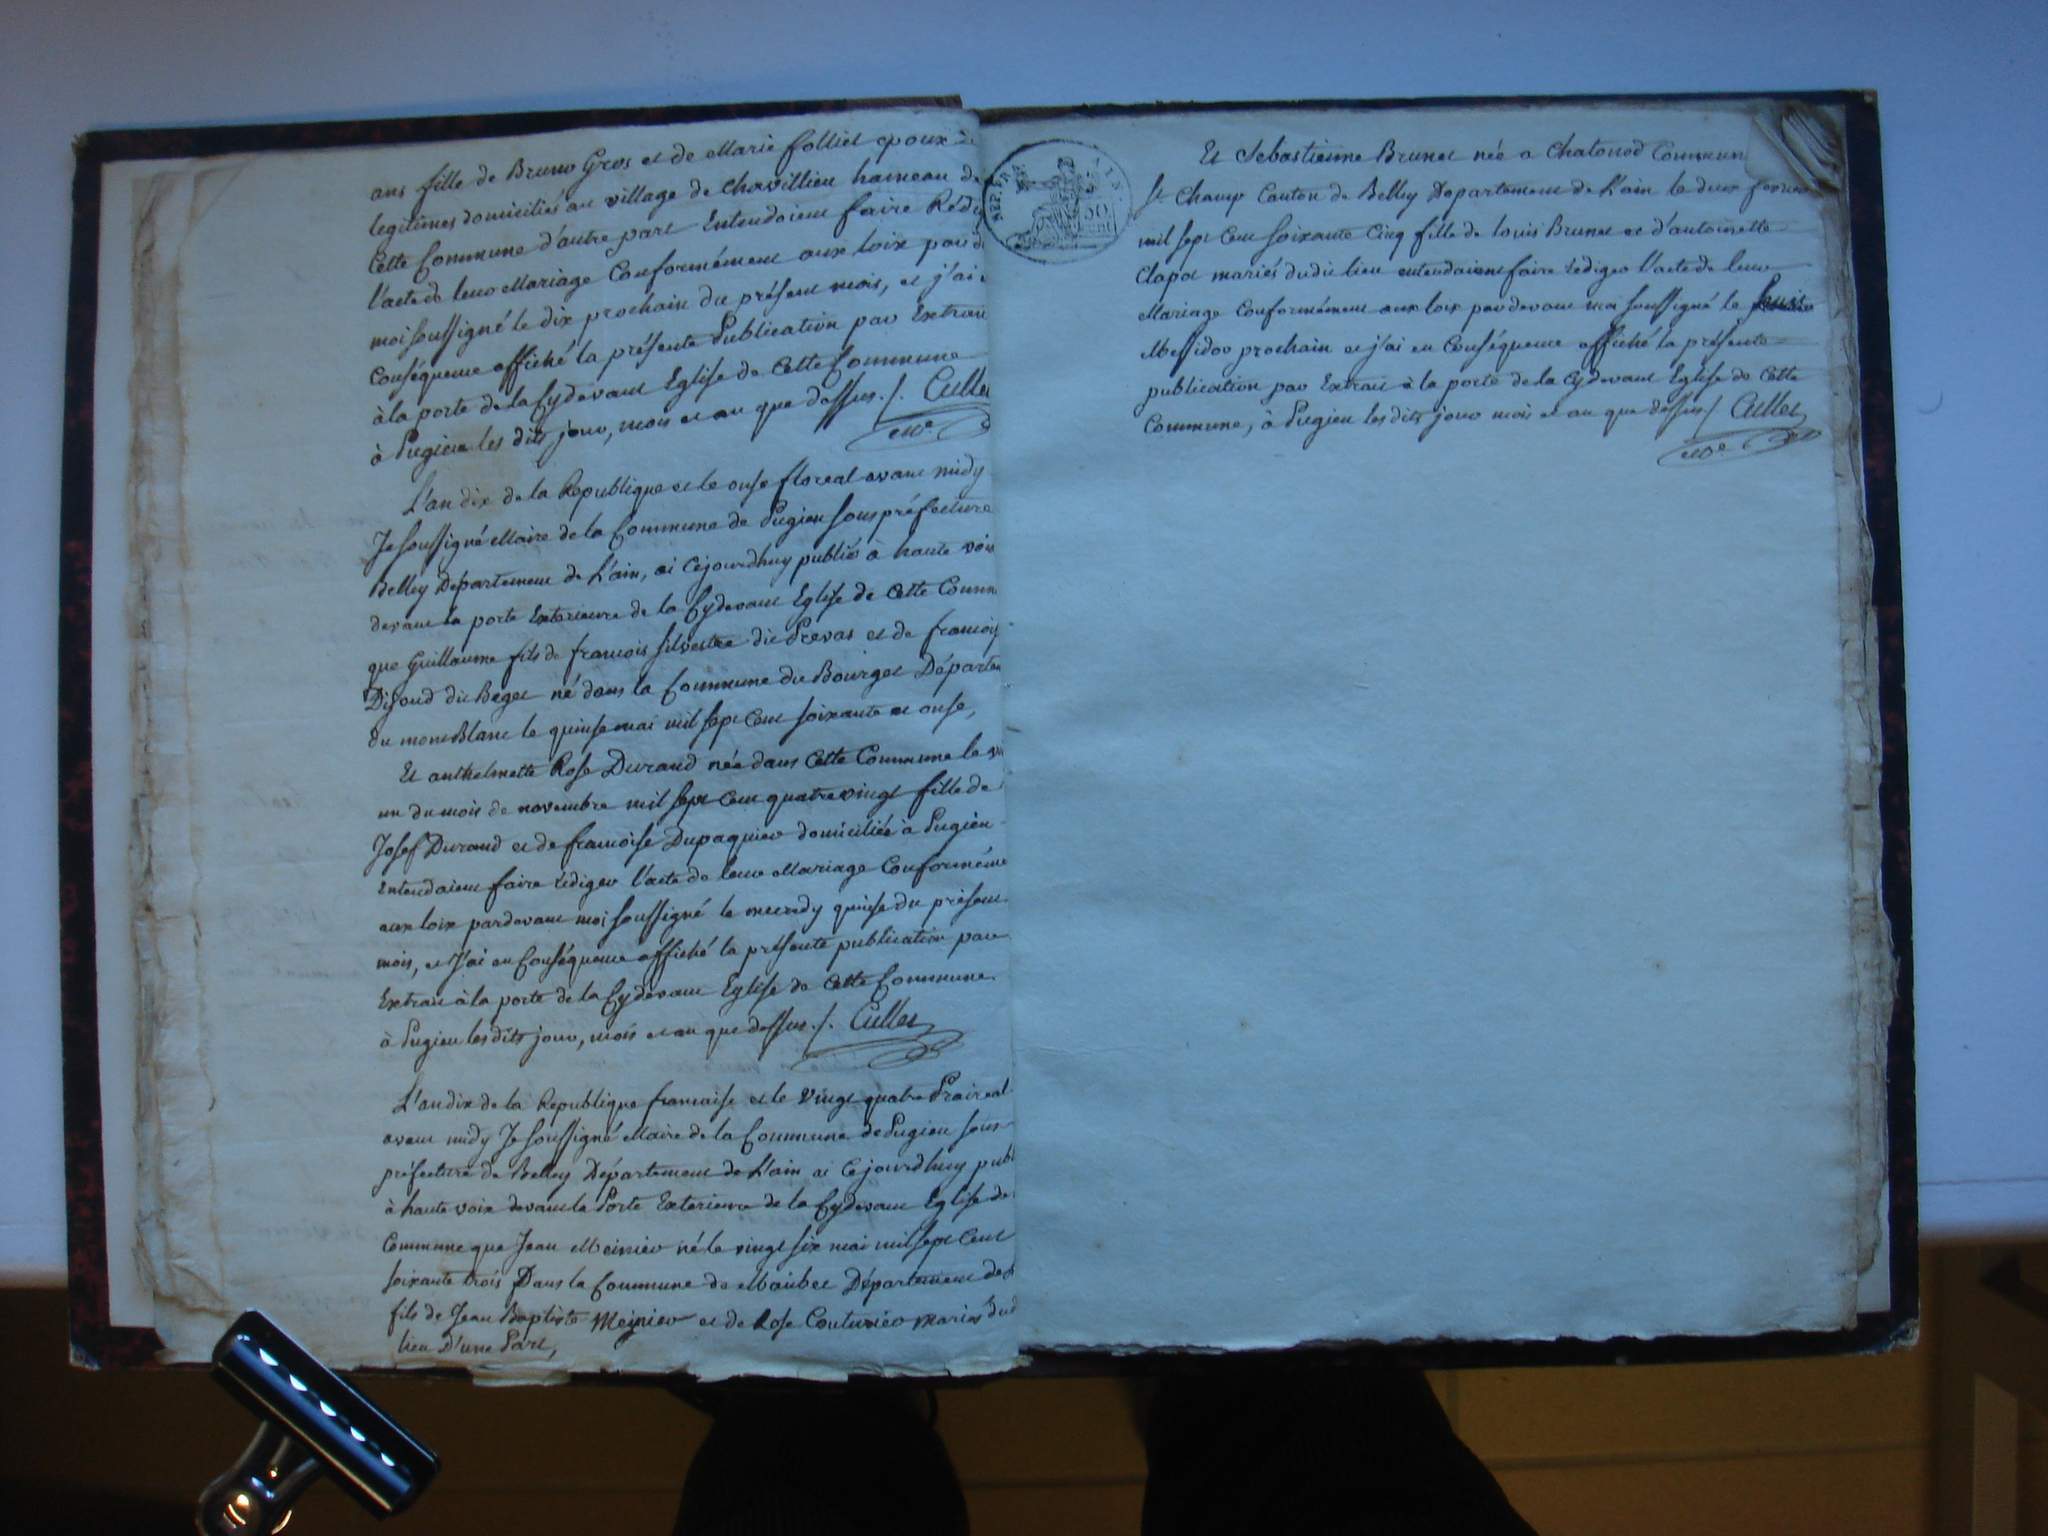 ans fille de Bruno Gros et de Marie folliet epoux
legitimes domiciliés au village de chavillieu hameau de
Cette Commune d'autre part Entendoient faire
l'acte de leur Mariage Conformément aux loix par
moi soussigné le dix prochain du présent mois, et j'ai
Conséquence affiché la présente Publication par Extrait
à la porte de la Cydevant Eglise de Cette Commune
à Pugieu les dits jour, mois et an que dessus ./. Cullet
L'an dix de la Republique et le onse floreal avant midy
Je soussigné Maire de la Commune de Pugieu souspréfecture
Belley Département de L'ain, ai Cejourdhuy publié à haute voix
devant la porte Exterieure de la Cydevant Eglise de Cette
que Guillaume fils de francois silvestre dit Prevas et de
dit Beget né dans la Commune du Bourget
du mont Blanc le quinse mai mil sept Cent soixante et onse,
Et anthelmette Rose Durand née dans Cette Commune le
un du mois de novembre mil sept Cent quatre vingt fille de
Josef Durand et de francoise Dupaquier domiciliée à Pugieu
Entendaient faire rédiger l'acte de leur Mariage
aux loix pardevant moi soussigné le quinse du présent
mois, et J'ai en Conséquence affiché la présente publication par
Extrait à la porte de la Cydevant Eglise de Cette Commune
à Pugieu les dits jour, mois et an que dessus ./. Cullet
L'an dix de la Republique francaise et le vingt quatre Prairéal
avant midy Je soussigné Maire de la Commune de Pugieu sous
préfecture de Belley Département de L'ain ai Cejourdhuy
à haute voix devant la Porte Exterieure de la Cydevant Eglise de
Commune que Jean né le vingt six mai mil sept Cent
soixante trois Dans la Commune de Maubec Département de
fils de Jean Baptiste et de Rose Couturier mariés
lieu D'une Part,
REP. FRA. AIN.
50
Et Sebastienne Brunet née a Chatonod
St Champ Canton de Belley Departement de L'ain le deux
mil sept Cent soixante Cinq fille de louis Brunet et d'antoinette
Clapot mariés dudit lieu entendaient faire rédiger l'acte de leur
Mariage Conformément aux loix pardevant moi soussigné le
Messidor prochain et j'ai en Conséquence affiché la présente
publication par Extrait à la porte de la Cydevant Eglise de Cette
Commune, à Pugieu les dits jour mois et an que dessus ./ Cullet